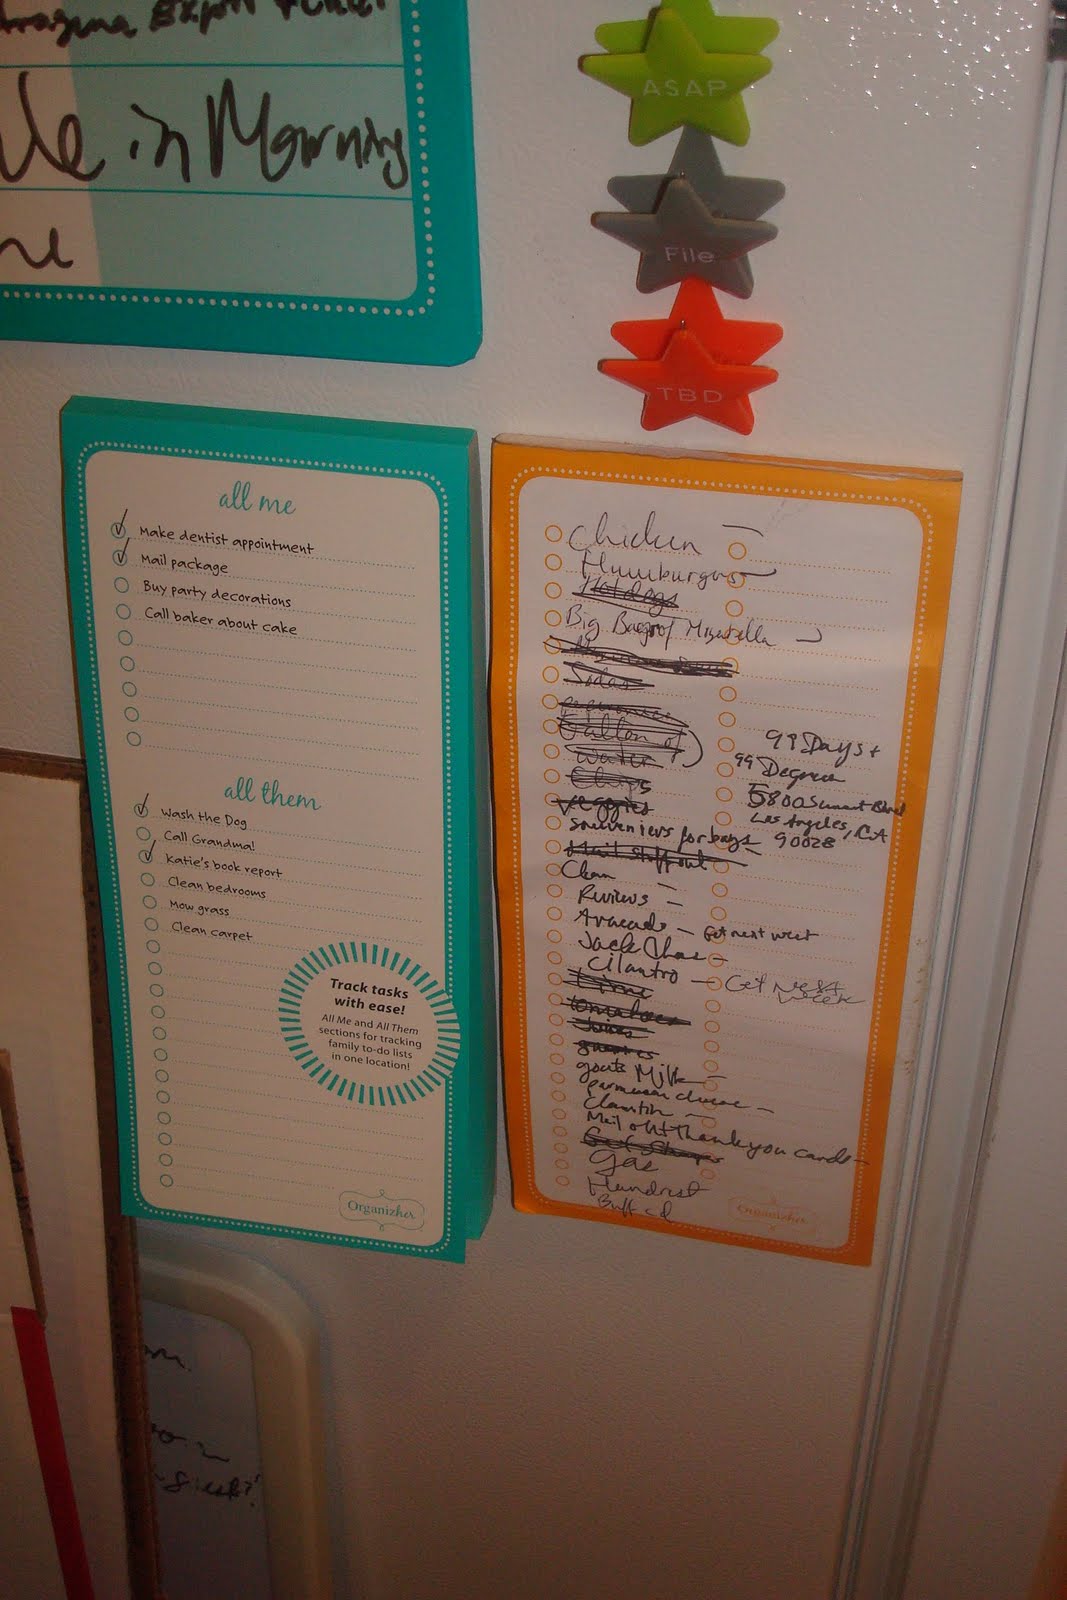 in Morning
ASAP
File
TBD
all me
Make dentist appointment
Mail package
Buy party decorations
Call baker about cake
all them
Wash the Dog
Call Grandma!
Katie's book report
Clean bedrooms
Mow grass
Clean carpet
Track tasks
with ease!
All Me and All Them
sections for tracking
family to-do lists
in one location!
Organizher
Chicken
Hot dogs
Big Bag of
Sodas
Gallon of
water
Chips
veggies
souveniers for boys
Mail stuff out
Clean
Reviews
Avacado - Get next week
Cilantro - Get next week
Lime
tomatoes
Juices
goats Milk
parmesan cheese
Mail out thank you cards
gas
99 Days +
99 Degrees
5800 Sunset Blvd
Los Angeles, CA
90028
Organizher